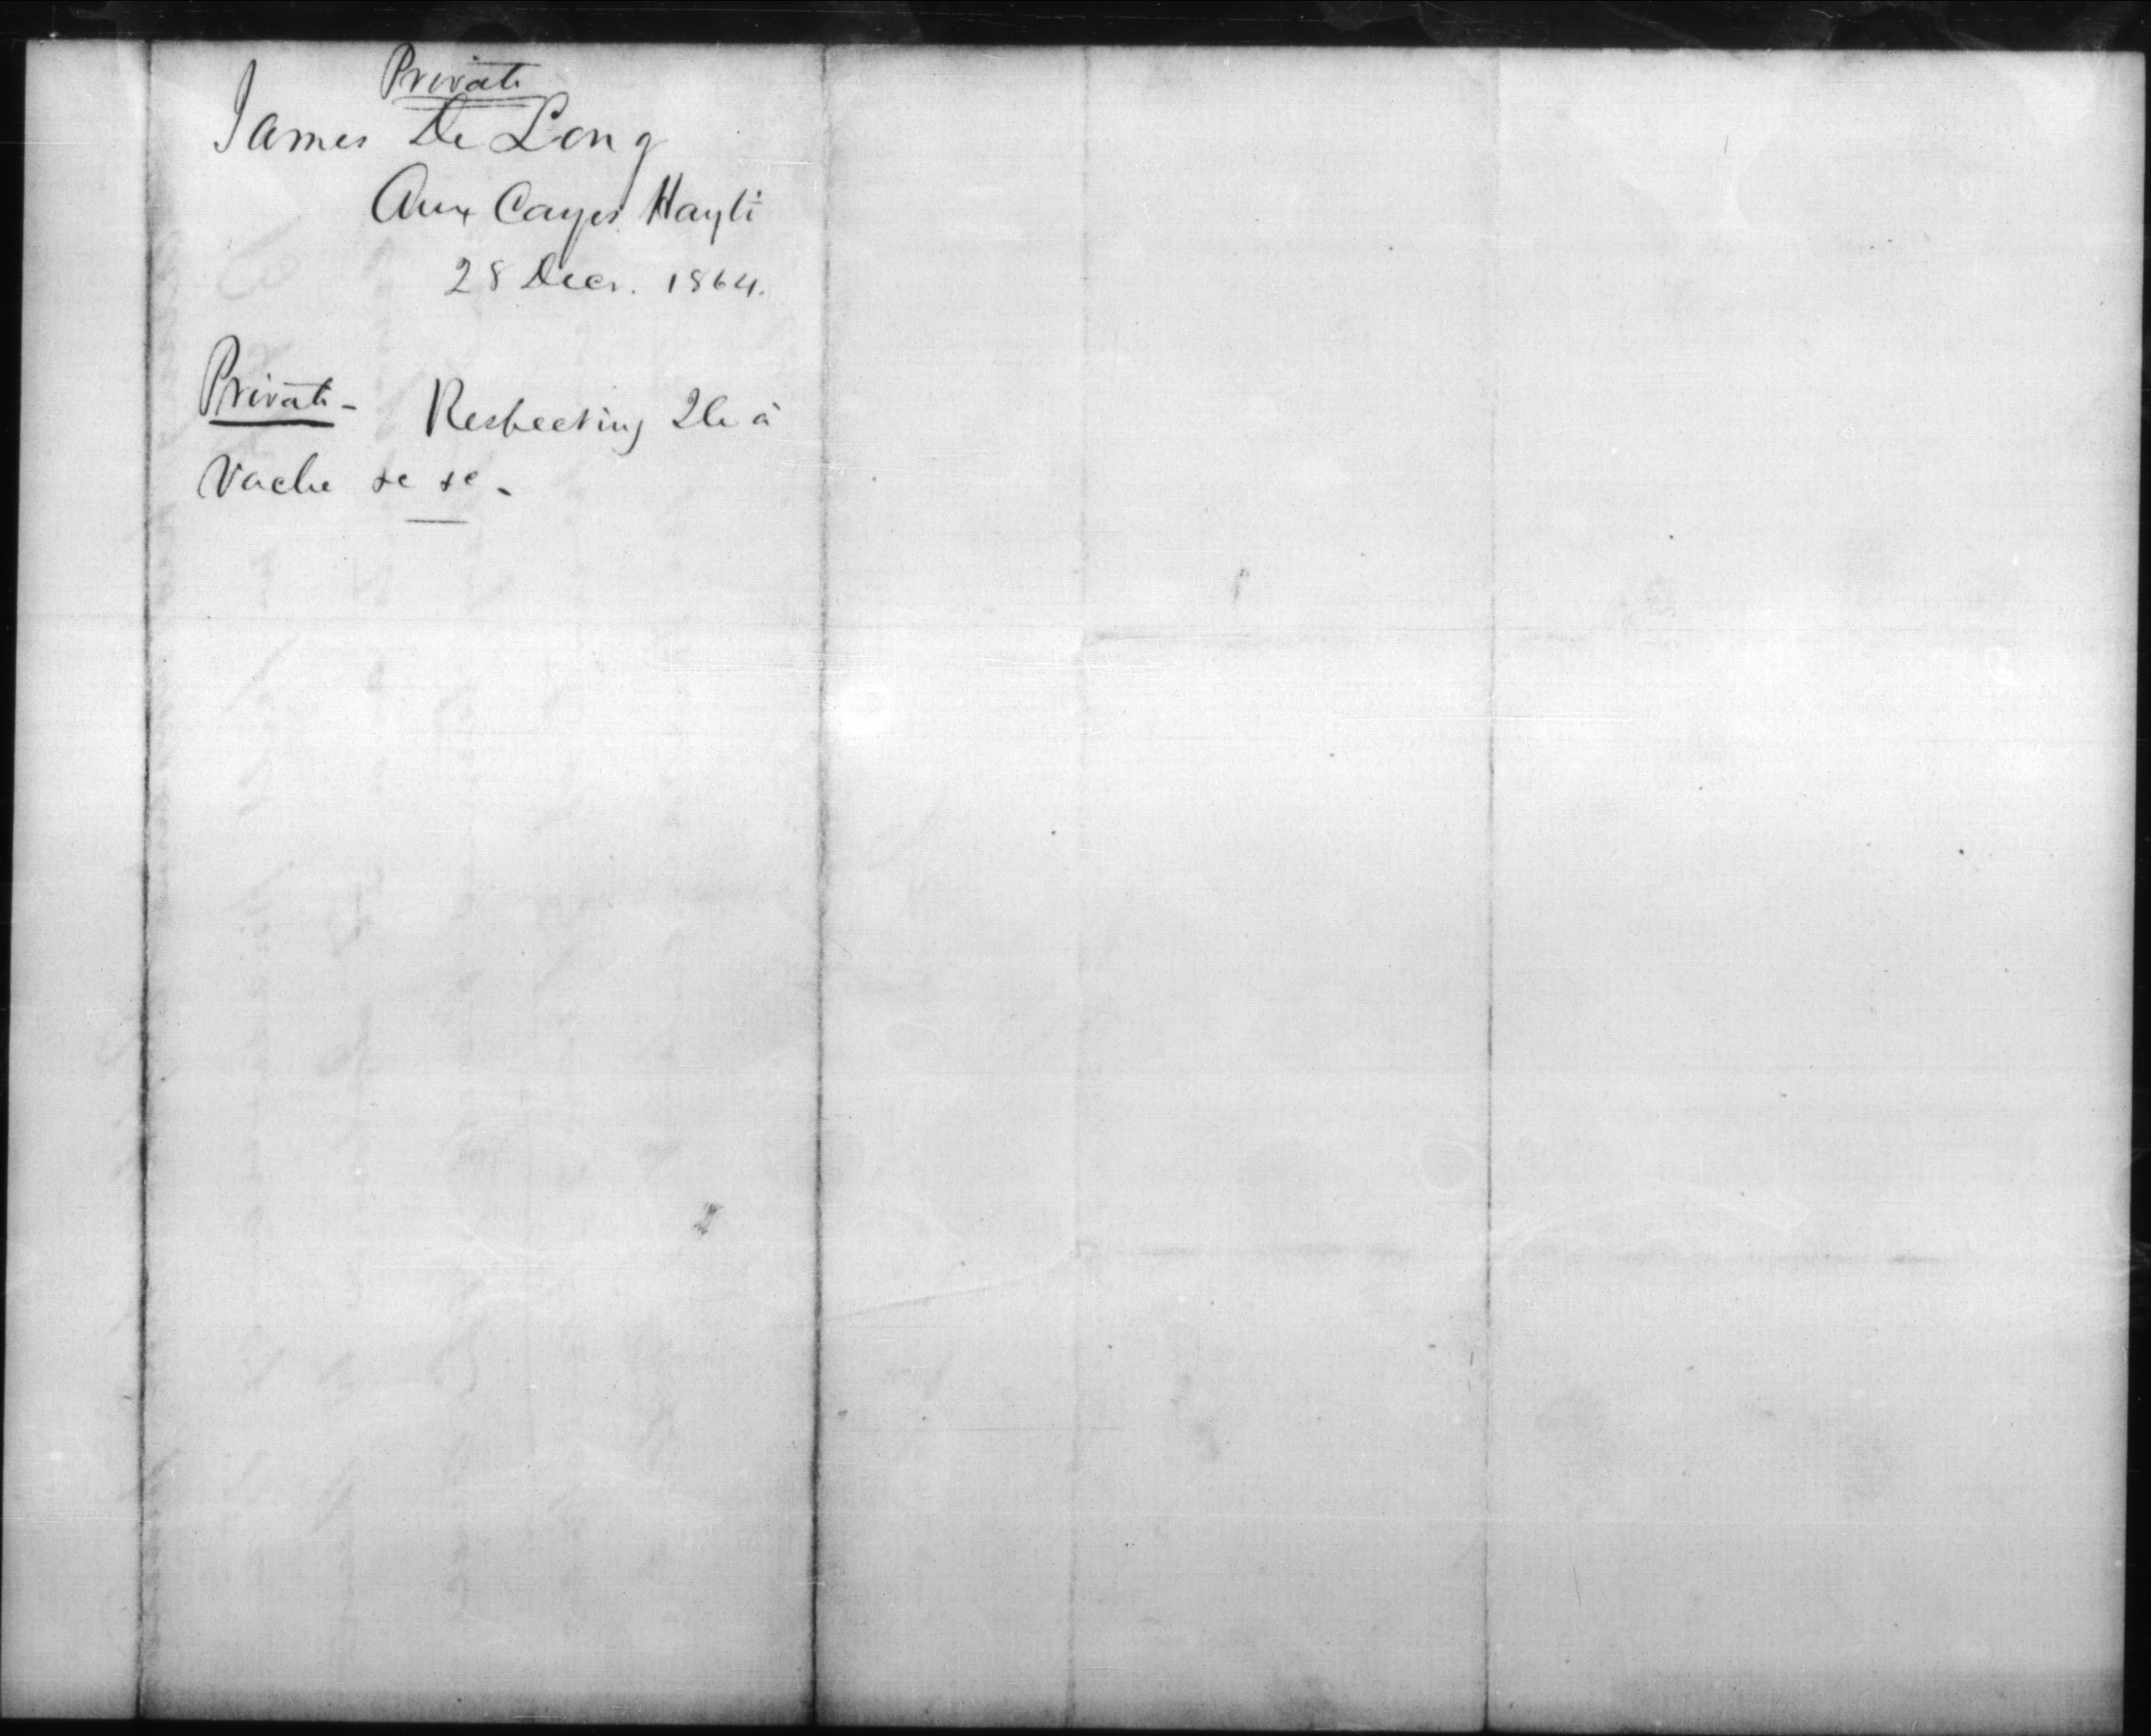 Private
James De Long
Aux Cayes Hayti
28 Decr. 1864.
Private - Respecting Ile à
Vache &c &c.